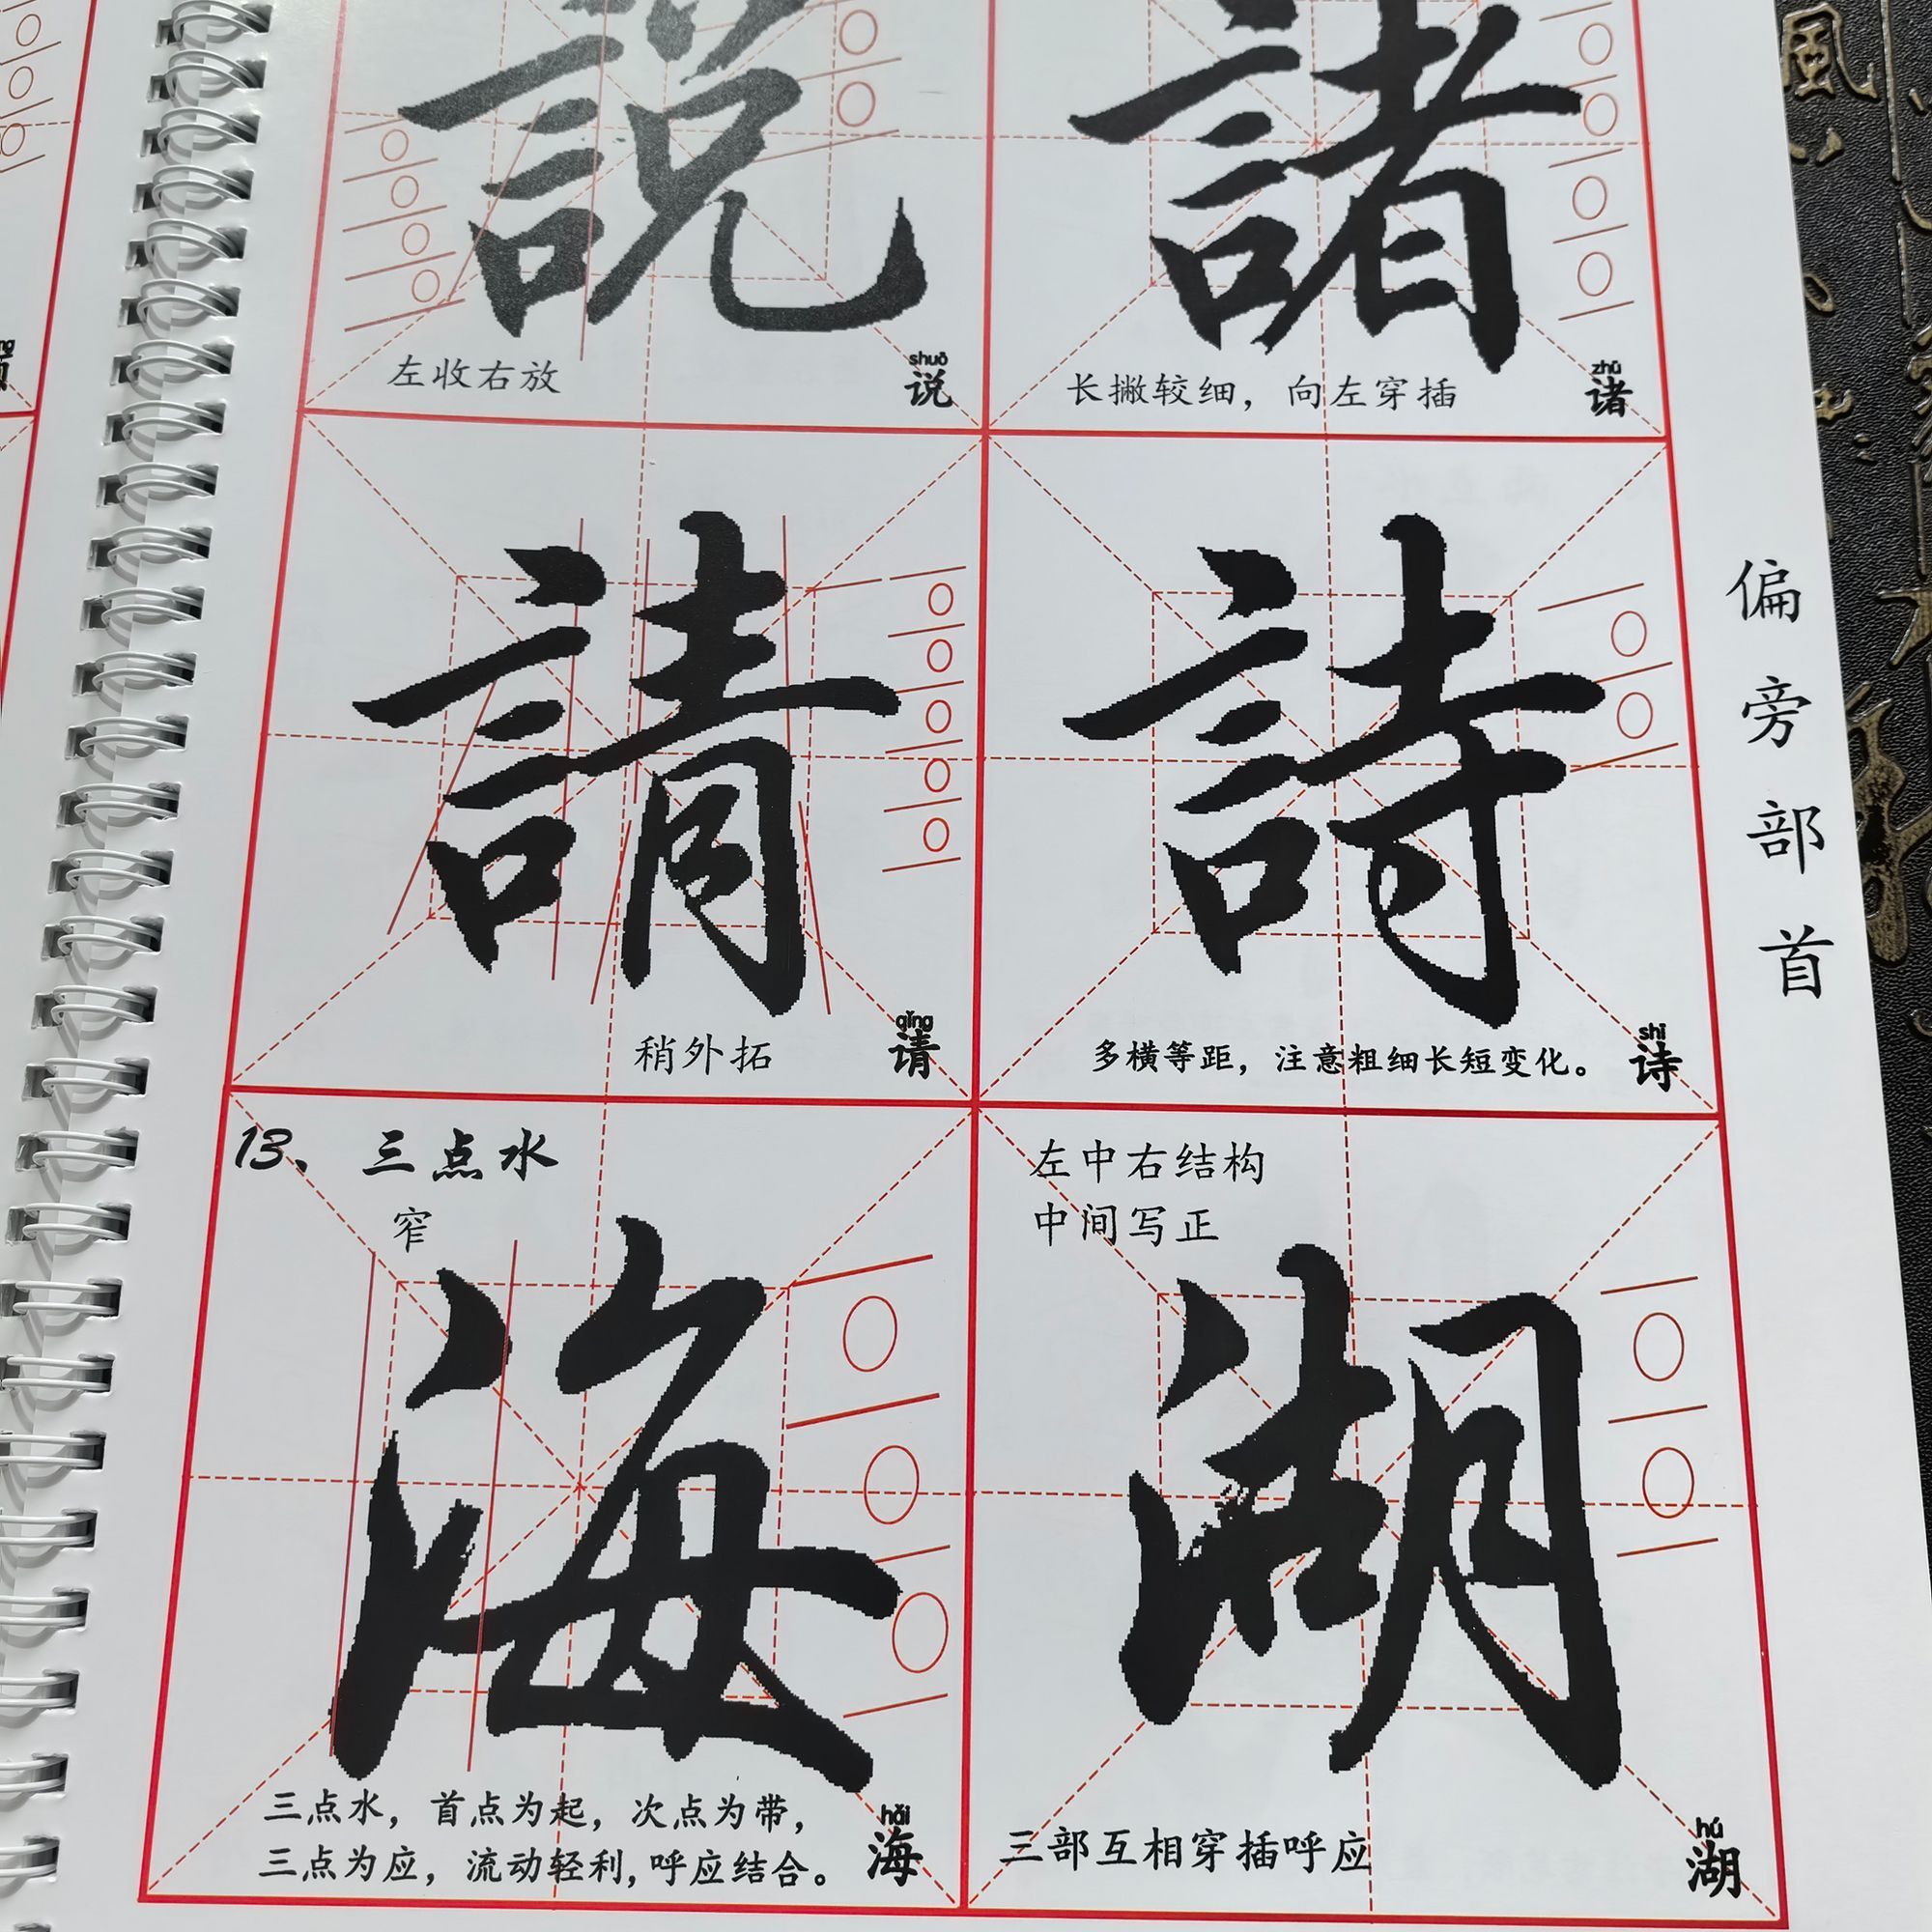 説
左收右放
shuō
说
諸
长撇较细，向左穿插
zhū
诸
請
稍外拓
qǐng
请
詩
多横等距，注意粗细长短变化。
shī
诗
13、三点水
窄
海
三点水，首点为起，次点为带，
三点为应，流动轻利，呼应结合。
hǎi
海
左中右结构
中间写正
湖
三部互相穿插呼应
hú
湖
偏旁部首
風